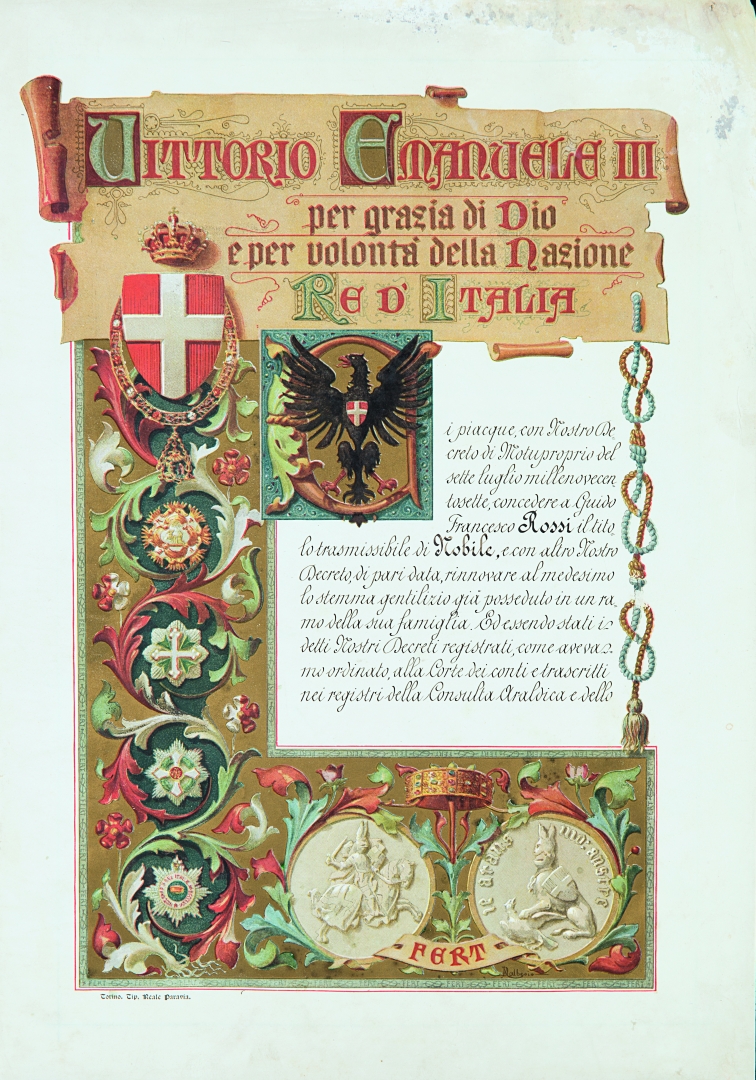 VITTORIO EMANUELE III
per grazia di Dio
e per volontà della Nazione
RE D' ITALIA
i piacque, con Nostro De
creto di Motuproprio del
sette luglio millenovecen
tosette, concedere a Guido
Francesco Rossi il tito
lo trasmissibile di Nobile, e con altro Nostro
Decreto, di pari data, rinnovare al medesimo
lo stemma gentilizio già posseduto in un ra
mo della sua famiglia. Ed essendo stati i
detti Nostri Decreti registrati, come aveva
mo ordinato, alla Corte dei conti e trascritti
nei registri della Consulta Araldica e dello
FERT
Torino. Tip. Reale Paravia.